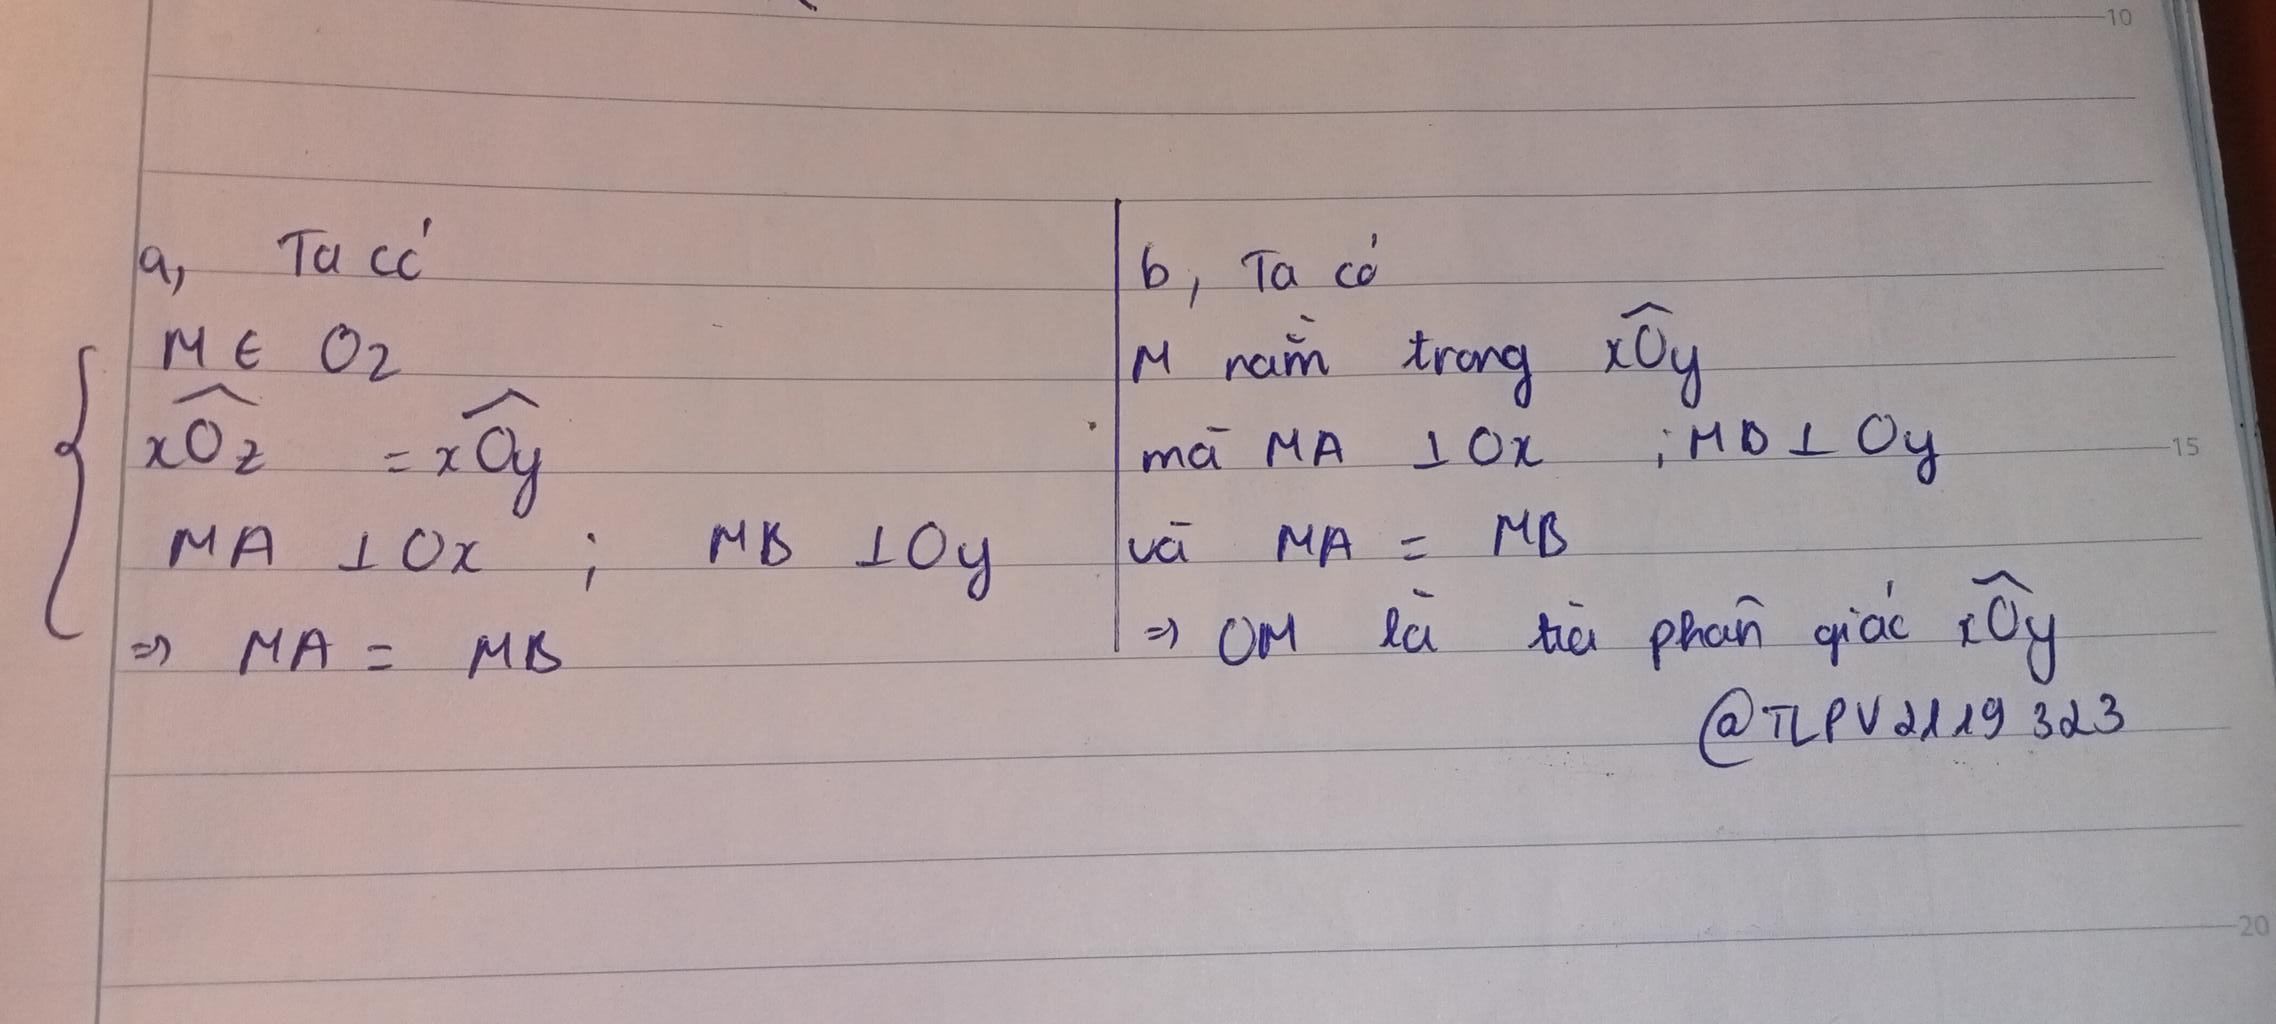 10
a, Ta có
M ∈ Oz
xOz = xOy
MA ⊥ Ox ; MB ⊥ Oy
=> MA = MB
b, Ta có
M nằm trong xOy
mà MA ⊥ Ox ; MB ⊥ Oy
và MA = MB
=> OM là tia phân giác xOy
@TLPV2119323
15
20